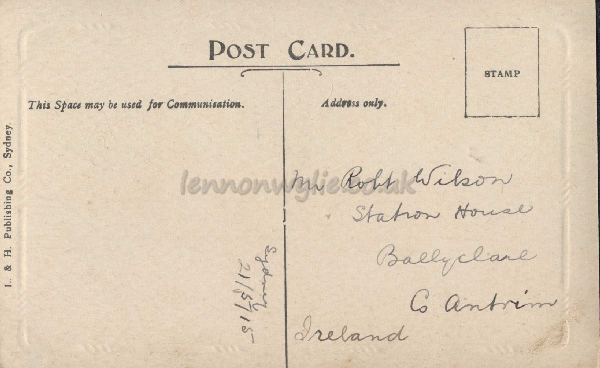 POST CARD.
STAMP
This Space may be used for Communication.
Address only.
I. & H. Publishing Co., Sydney.
lennonwylie.co.uk
Mr Robt Wilson
Station House
Ballyclare
Co Antrim
Ireland
Sydney
21/5/15